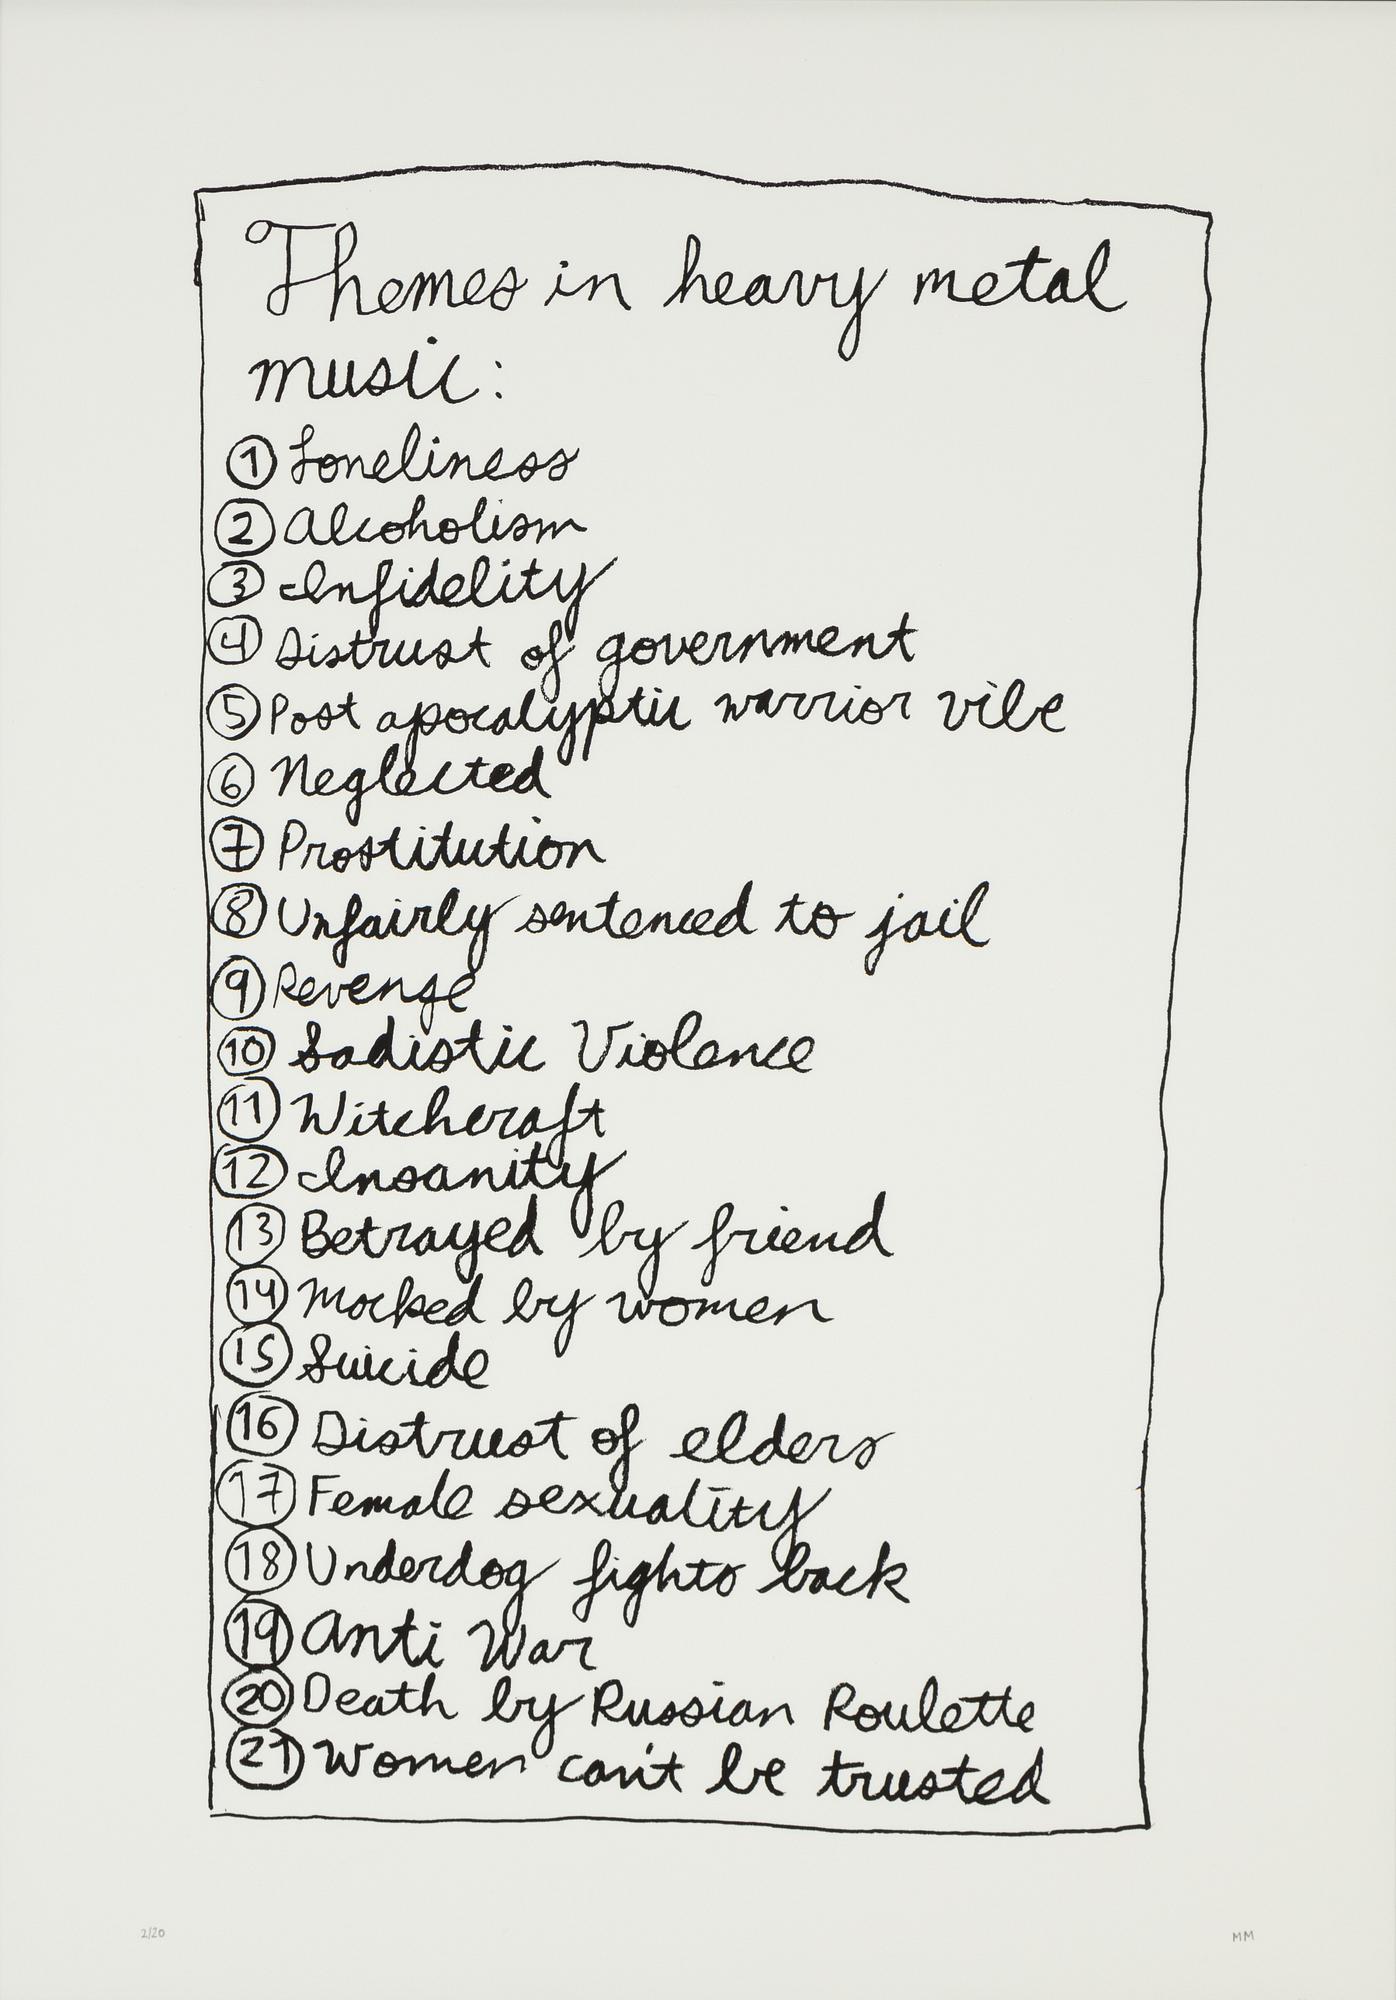 Themes in heavy metal
music:
1 Loneliness
2 Alcoholism
3 Infidelity
4 Distrust of government
5 Post apocalyptic warrior vibe
6 Neglected
7 Prostitution
8 Unfairly sentenced to jail
9 Revenge
10 Sadistic Violence
11 Witchcraft
12 Insanity
13 Betrayed by friend
14 Mocked by women
15 Suicide
16 Distrust of elders
17 Female sexuality
18 Underdog fights back
19 Anti War
20 Death by Russian Roulette
21 Women can't be trusted
2/20 MM